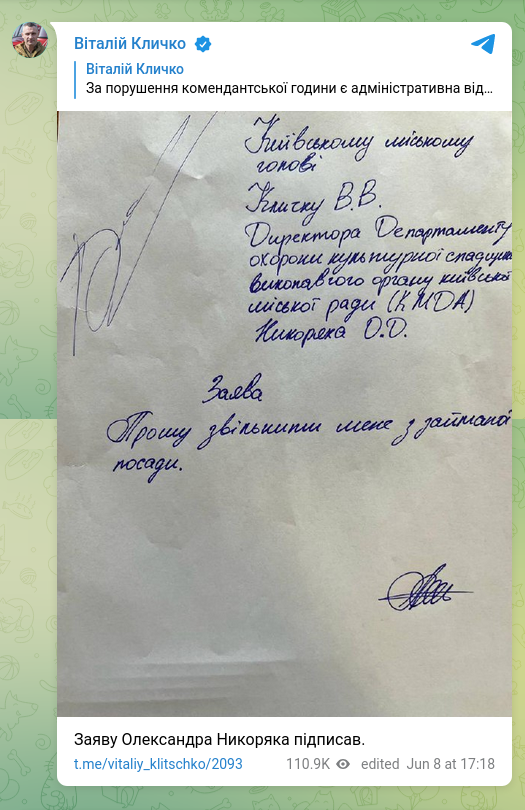 Віталій Кличко
Віталій Кличко
За порушення комендантської години є адміністративна від...
Київському міському
голові
Кличку В.В.
Директора Департаменту
охорони культурної спадщини
виконавчого органу київської
міської ради (КМДА)
Никоряка О.Д.
Заява
Прошу звільнити мене з займаної
посади.
Заяву Олександра Никоряка підписав.
t.me/vitaliy_klitschko/2093
110.9K edited Jun 8 at 17:18